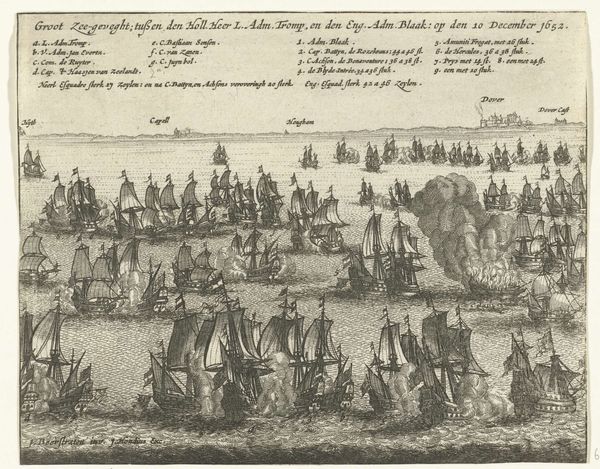 Groot Zee-gevegt; tußen den Holl. Heer L. Adm. Tromp, en den Eng. Adm. Blaak: op den 10 December 1652.
a. L. Adm. Tromp.
b. V. Adm. Jan Everts.
c. Com. de Ruyter.
d. Cap. 't Haasjen van Zeelandt.
e. C. Bastiaan
f. C. van Zanen.
g. C. Juynbol.
1. Adm. Blaak.
2. Cap. Battyn, de Rozekrans; 44 a 46 st.
3. C. Achson, de Bonaventure; 36 a 38 st.
4. de Blyde Intrée. 34 a 36 stuk.
5. Amuniti Fregat, met 26 stuk.
6. de Hercules, 36 a 38 stuk.
7. Prys met 24 st. 8. een met 24 st.
9. een met 20 stuk.
Neerl. Esquadre sterk 27 Zeylen: en na C. Battyn, en Achsons veroveringh 20 sterk.
Eng. Esquad. sterk 42 a 46 Zeylen.
Hyth
Capell
Hougham
Dover
Dover Cast
J. Beerstraten inv. J. Hondius Exc.
6